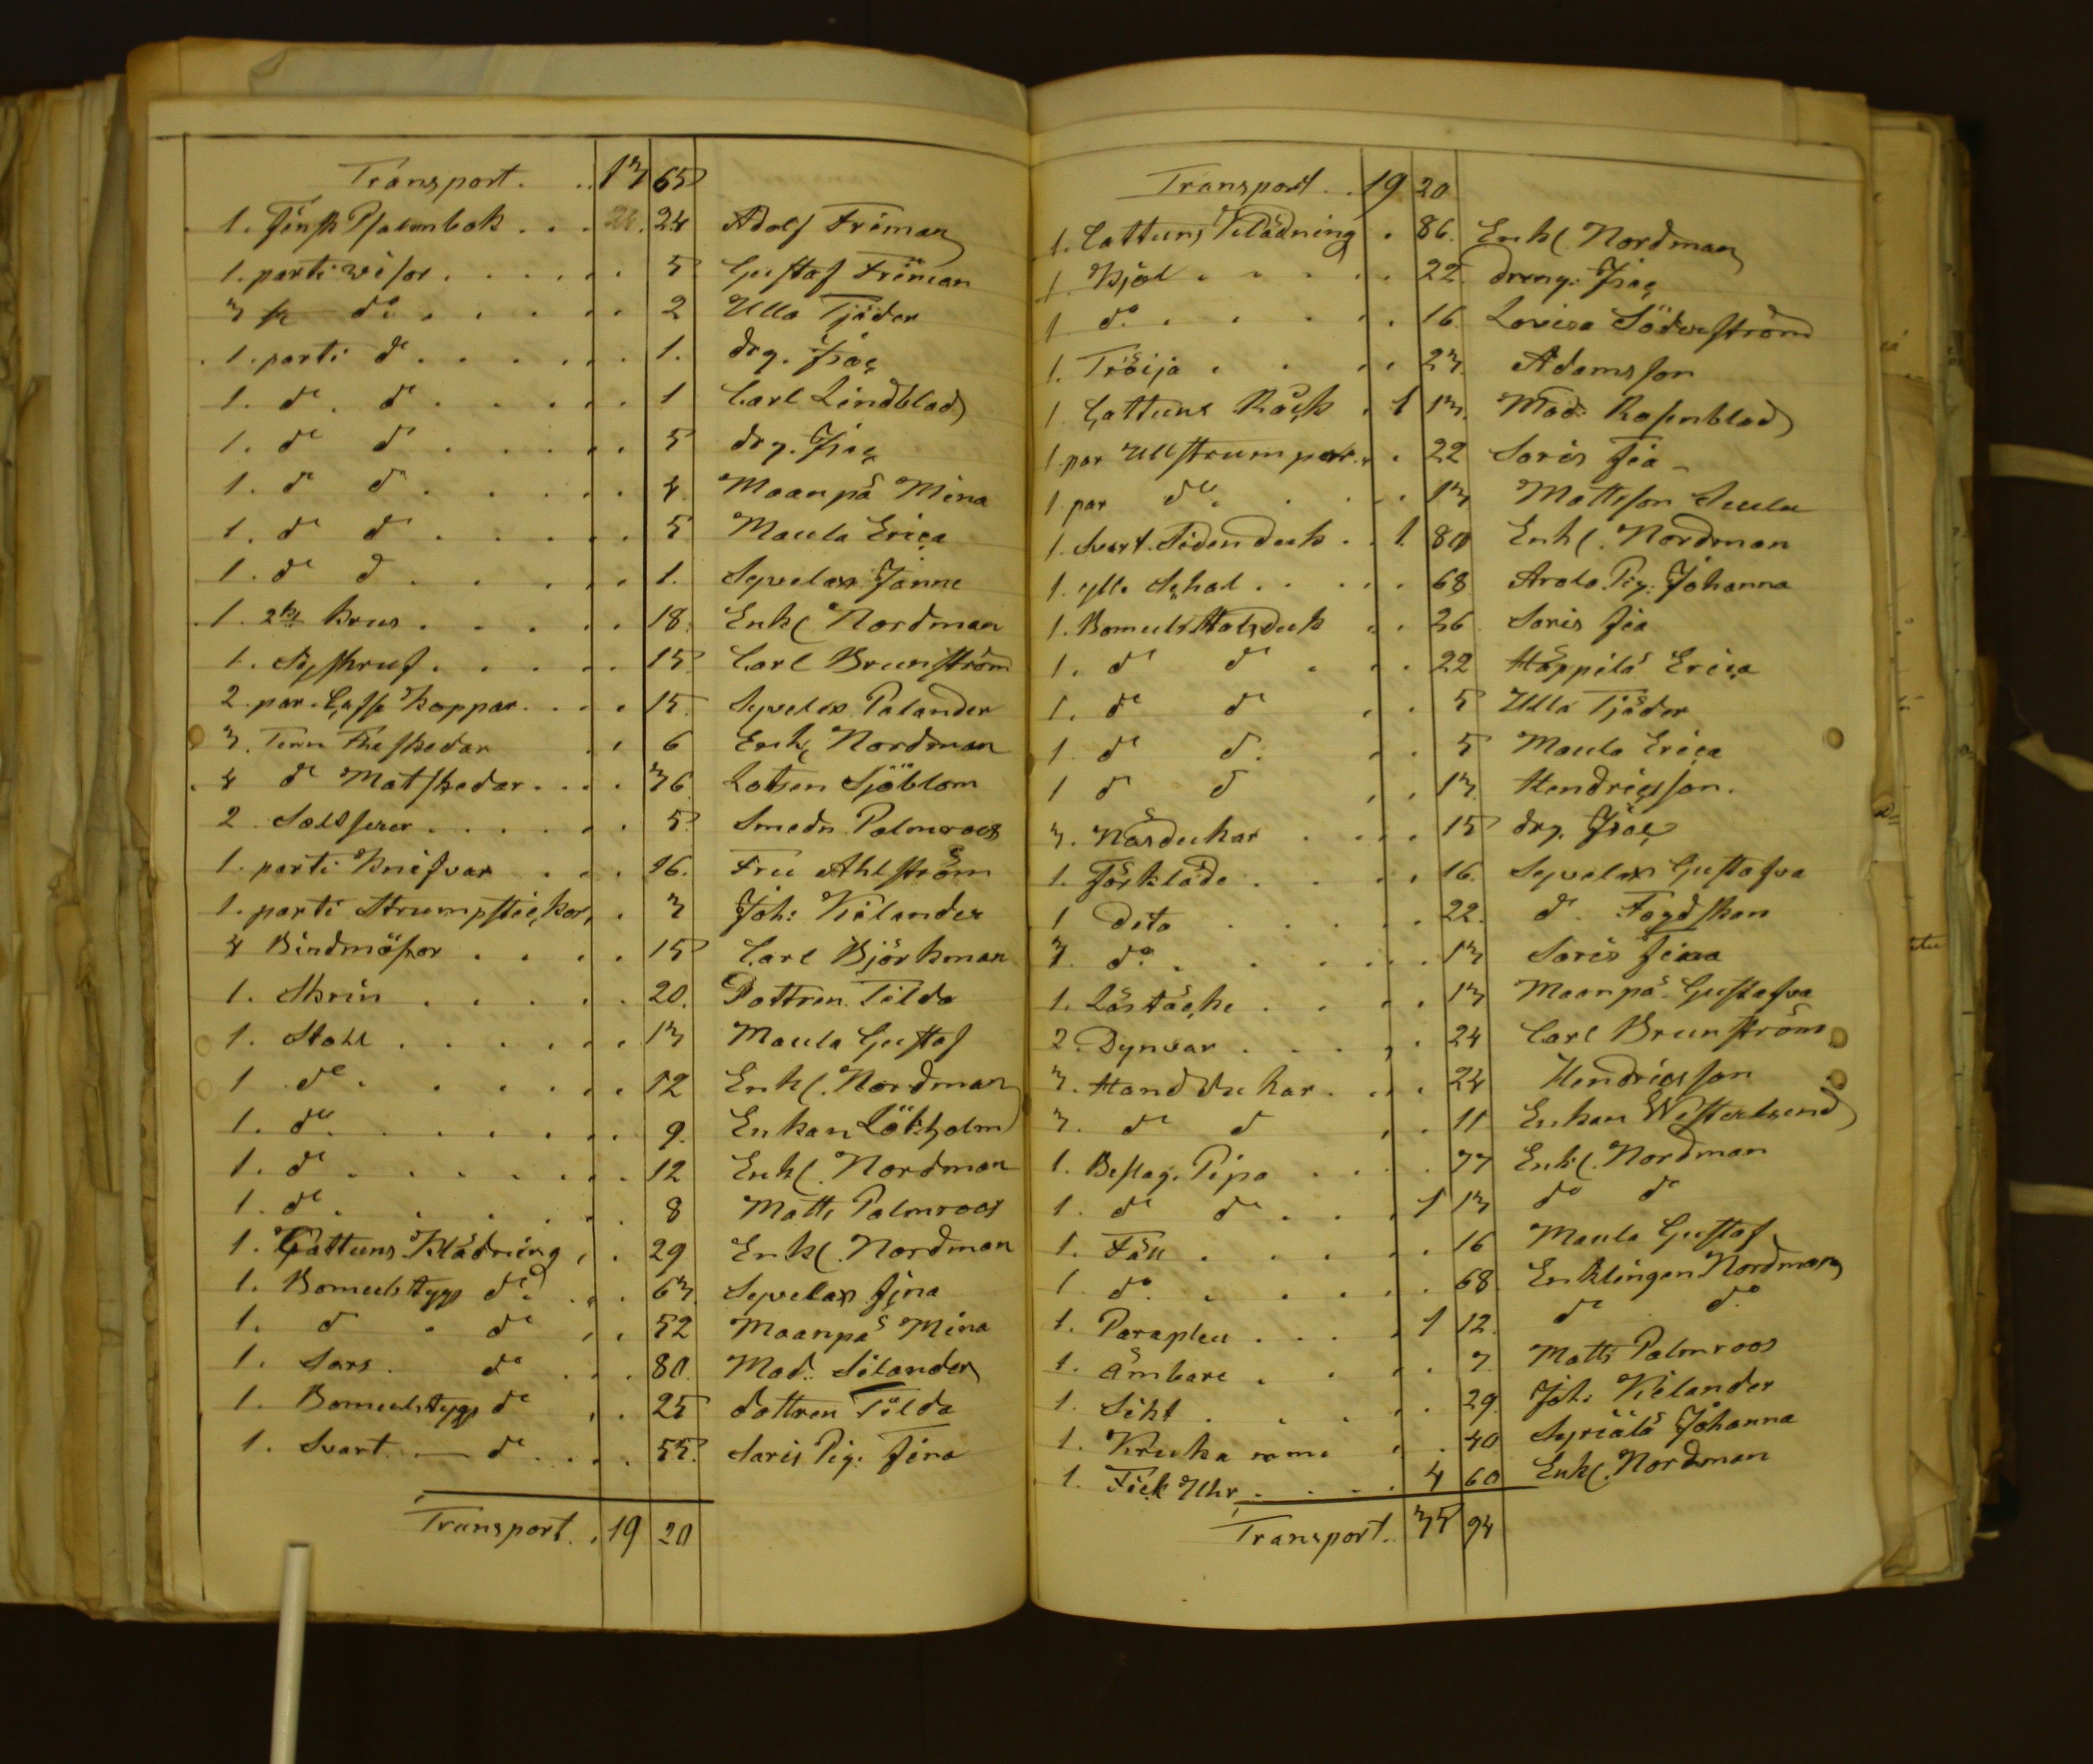 Transport. . . 13 65
1. Finsk Psalmbok . . . 24. 24 Adolf Friman
1. parti visor . . . . . . 5 Gustaf Friman
3 st do . . . . . . 2 Ulla Tjäder
1. parti do . . . . . . 1. drg. Isac
1. do. do . . . . . 1 Carl Lindblad
1. do do . . . . . 5 drg. Isac
1. do do . . . . . 4 Maanpä Mina
1. do do . . . . . 5 Maula Erica
1. do do . . . . . 1. Syvelax Janne
1. Krus . . . . . 18. Enkl. Nordman
1. Syskruf . . . . . 15 Carl Brunström
2 par. Caffe Koppar . . . . 15. Syvelax Palander
3. Tenn Theskedar . . 6 Enkl. Nordman
4 do Matskedar . . . . 36. Lotsen Sjöblom
2 Saltserer . . . . . . 5. Smedn Palmroos
1. parti Knifvar . . . 16. Fru Ahlström
1. parti Strumpstickor . . 3 Joh: Kilander
4 Bindmösor . . . . 15 Carl Björkman
1. Skrin . . . . . 20. Dottren Tilda
1. Stoll . . . . . . 13 Maula Gustaf
1 do . . . . . . 12 Enkl. Nordman
1. do . . . . . . 9. Enkan Lökholm
1. do . . . . . . 12 Enkl. Nordman
1. do . . . . . . 8 Matts Palmroos
1. Cattuns Klädning . . 29 Enkl. Nordman
1. Bomulstygs do . . . 63. Syvelax Fina
1. do . do . . 52 Maanpä Mina
1. Sars. do . . . 80. Mad. Silander
1. Bomulstygs do . . 25 dottren Tilda
1. Svart — do . . . . 55. Saris Pig. Fina
Transport. . 19 20
Transport . . 19 20
1. Cattuns Klädning . 86. Enkl. Nordman
1. Kjol . . . . . 22. dreng. Isac
1 do . . . . . . 16. Lovisa Söderström
1. Tröija . . . . 23. Adamsson
1. Cattuns Råck . 1 13. Mad: Rosenblad
1. par Ullstrumpor . . 22 Saris Fia
1 par do . . . . 13 Mattsson
1. Svart. Sidenduk . . 1. 80 Enkl. Nordman
1. ylle Schal . . . . . 68 Pig. Johanna
1. Bomuls Halsduk . . 26 Saris Fia
1. do do . . . 22 Häppilä Erica
1. do do . . 5 Ulla Tjäder
1 do do . . . 5 Maula Erica
1 do do . . 13. Hendricsson.
3. Näsdukar . . . . 15 drg. Isac
1. Förkläde . . . . 16. Syvelax Gustafva
1 dito . . . . . 22. do. Fogdskan
3. do . . . . . . 13 Saris Fina
1. Låstäcke . . . . 13 Maanpä Gustafva
2. Dynvar . . . . . 24 Carl Brunström
3. Handdukar . . . . 24 Hendricsson
3. do do . . 11 Enkan Westerlund
1. Beslag. Pipa . . . . 77 Enkl. Nordman
1. do do . . . 1 13 do do
1. Fäll . . . . . 16 Maula Gustaf
1. do . . . . . . 68. Enklingen Nordman
1. Paraplu . . . . 1 12. do do
1. ämbare . . . . 7. Matts Palmroos
1. Sikt . . . . . 29. Joh: Kilander
1. Kruka . . 40 Johanna
1. Fick Uhr . . . . 4 60 Enkl. Nordman
Transport. . 35 94